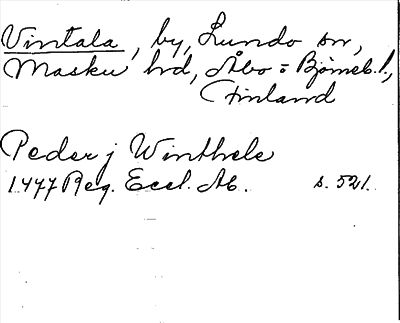 Vintala, by, Lundo sn,
Masku hd, Åbo = Björneb. l.,
Finland
Peder j Winthele
1477 Reg. Eccl. Ab. s. 521.